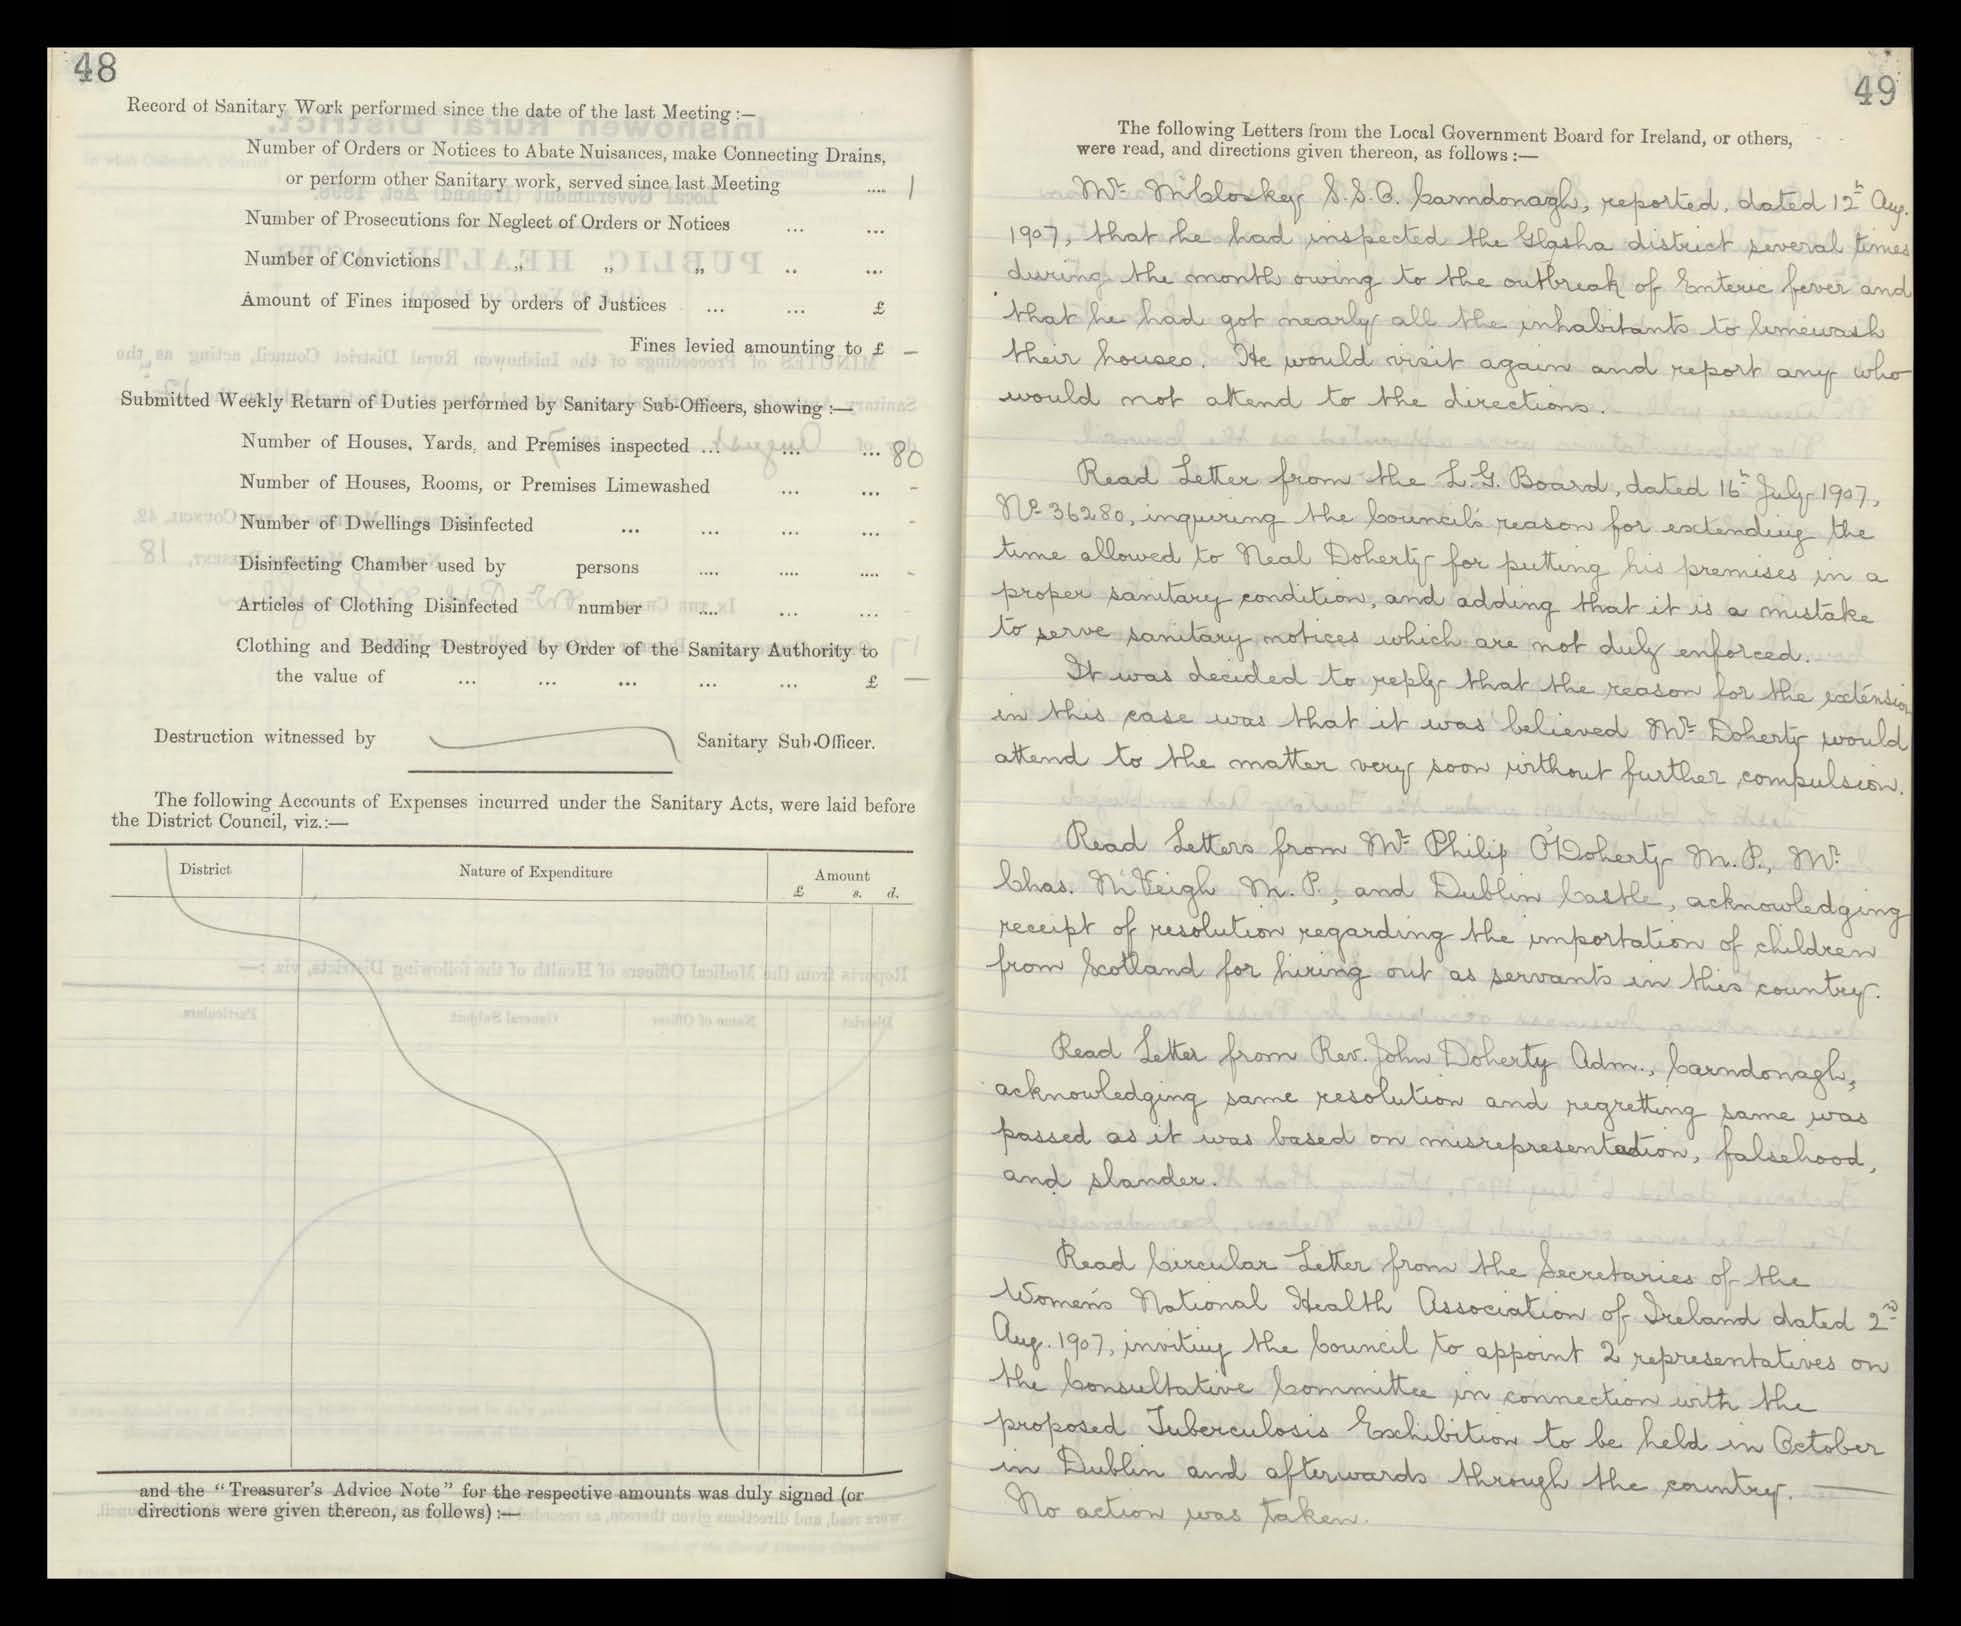 48
Record of Sanitary Work performed since the date of the last Meeting :—
Number of Orders or Notices to Abate Nuisances, make Connecting Drains,
or perform other Sanitary work, served since last Meeting .... 1
Number of Prosecutions for Neglect of Orders or Notices ... ...
Number of Convictions „ „ „ .. ...
Amount of Fines imposed by orders of Justices ... ... £
Fines levied amounting to £ —
Submitted Weekly Return of Duties performed by Sanitary Sub-Officers, showing :—
Number of Houses, Yards, and Premises inspected ... ... ... 80
Number of Houses, Rooms, or Premises Limewashed ... ... -
Number of Dwellings Disinfected ... ... ... ... -
Disinfecting Chamber used by persons .... .... .... -
Articles of Clothing Disinfected number .... ... ...
Clothing and Bedding Destroyed by Order of the Sanitary Authority to
the value of ... ... ... ... ... £ —
Destruction witnessed by Sanitary Sub-Officer.
The following Accounts of Expenses incurred under the Sanitary Acts, were laid before
the District Council, viz.:—
District Nature of Expenditure Amount
£ s. d.
and the "Treasurer's Advice Note" for the respective amounts was duly signed (or
directions were given thereon, as follows) :—
49
The following Letters from the Local Government Board for Ireland, or others,
were read, and directions given thereon, as follows :—
Mr. McCloskey S.S.O. Carndonagh, reported, dated 12th Aug.
1907, that he had inspected the Glasha district several times
during the month owing to the outbreak of Enteric fever and
that he had got nearly all the inhabitants to limewash
their houses. He would visit again and report any who
would not attend to the directions.
Read Letter from the L.G. Board, dated 16th July 1907,
No 36280, inquiring the Council's reason for extending the
time allowed to Neal Doherty for putting his premises in a
proper sanitary condition, and adding that it is a mistake
to serve sanitary notices which are not duly enforced.
It was decided to reply that the reason for the extension
in this case was that it was believed Mr. Doherty would
attend to the matter very soon without further compulsion.
Read Letters from Mr. Philip O'Doherty M.P., Mr.
Chas. McVeigh M.P., and Dublin Castle, acknowledging
receipt of resolution regarding the importation of children
from Scotland for hiring out as servants in this country.
Read Letter from Rev. John Doherty Adm., Carndonagh,
acknowledging same resolution and regretting same was
passed as it was based on misrepresentation, falsehood,
and slander.
Read Circular Letter from the Secretaries of the
Women's National Health Association of Ireland dated 2nd
Aug. 1907, inviting the Council to appoint 2 representatives on
the Consultative Committee in connection with the
proposed Tuberculosis Exhibition to be held in October
in Dublin and afterwards through the country. —
No action was taken.